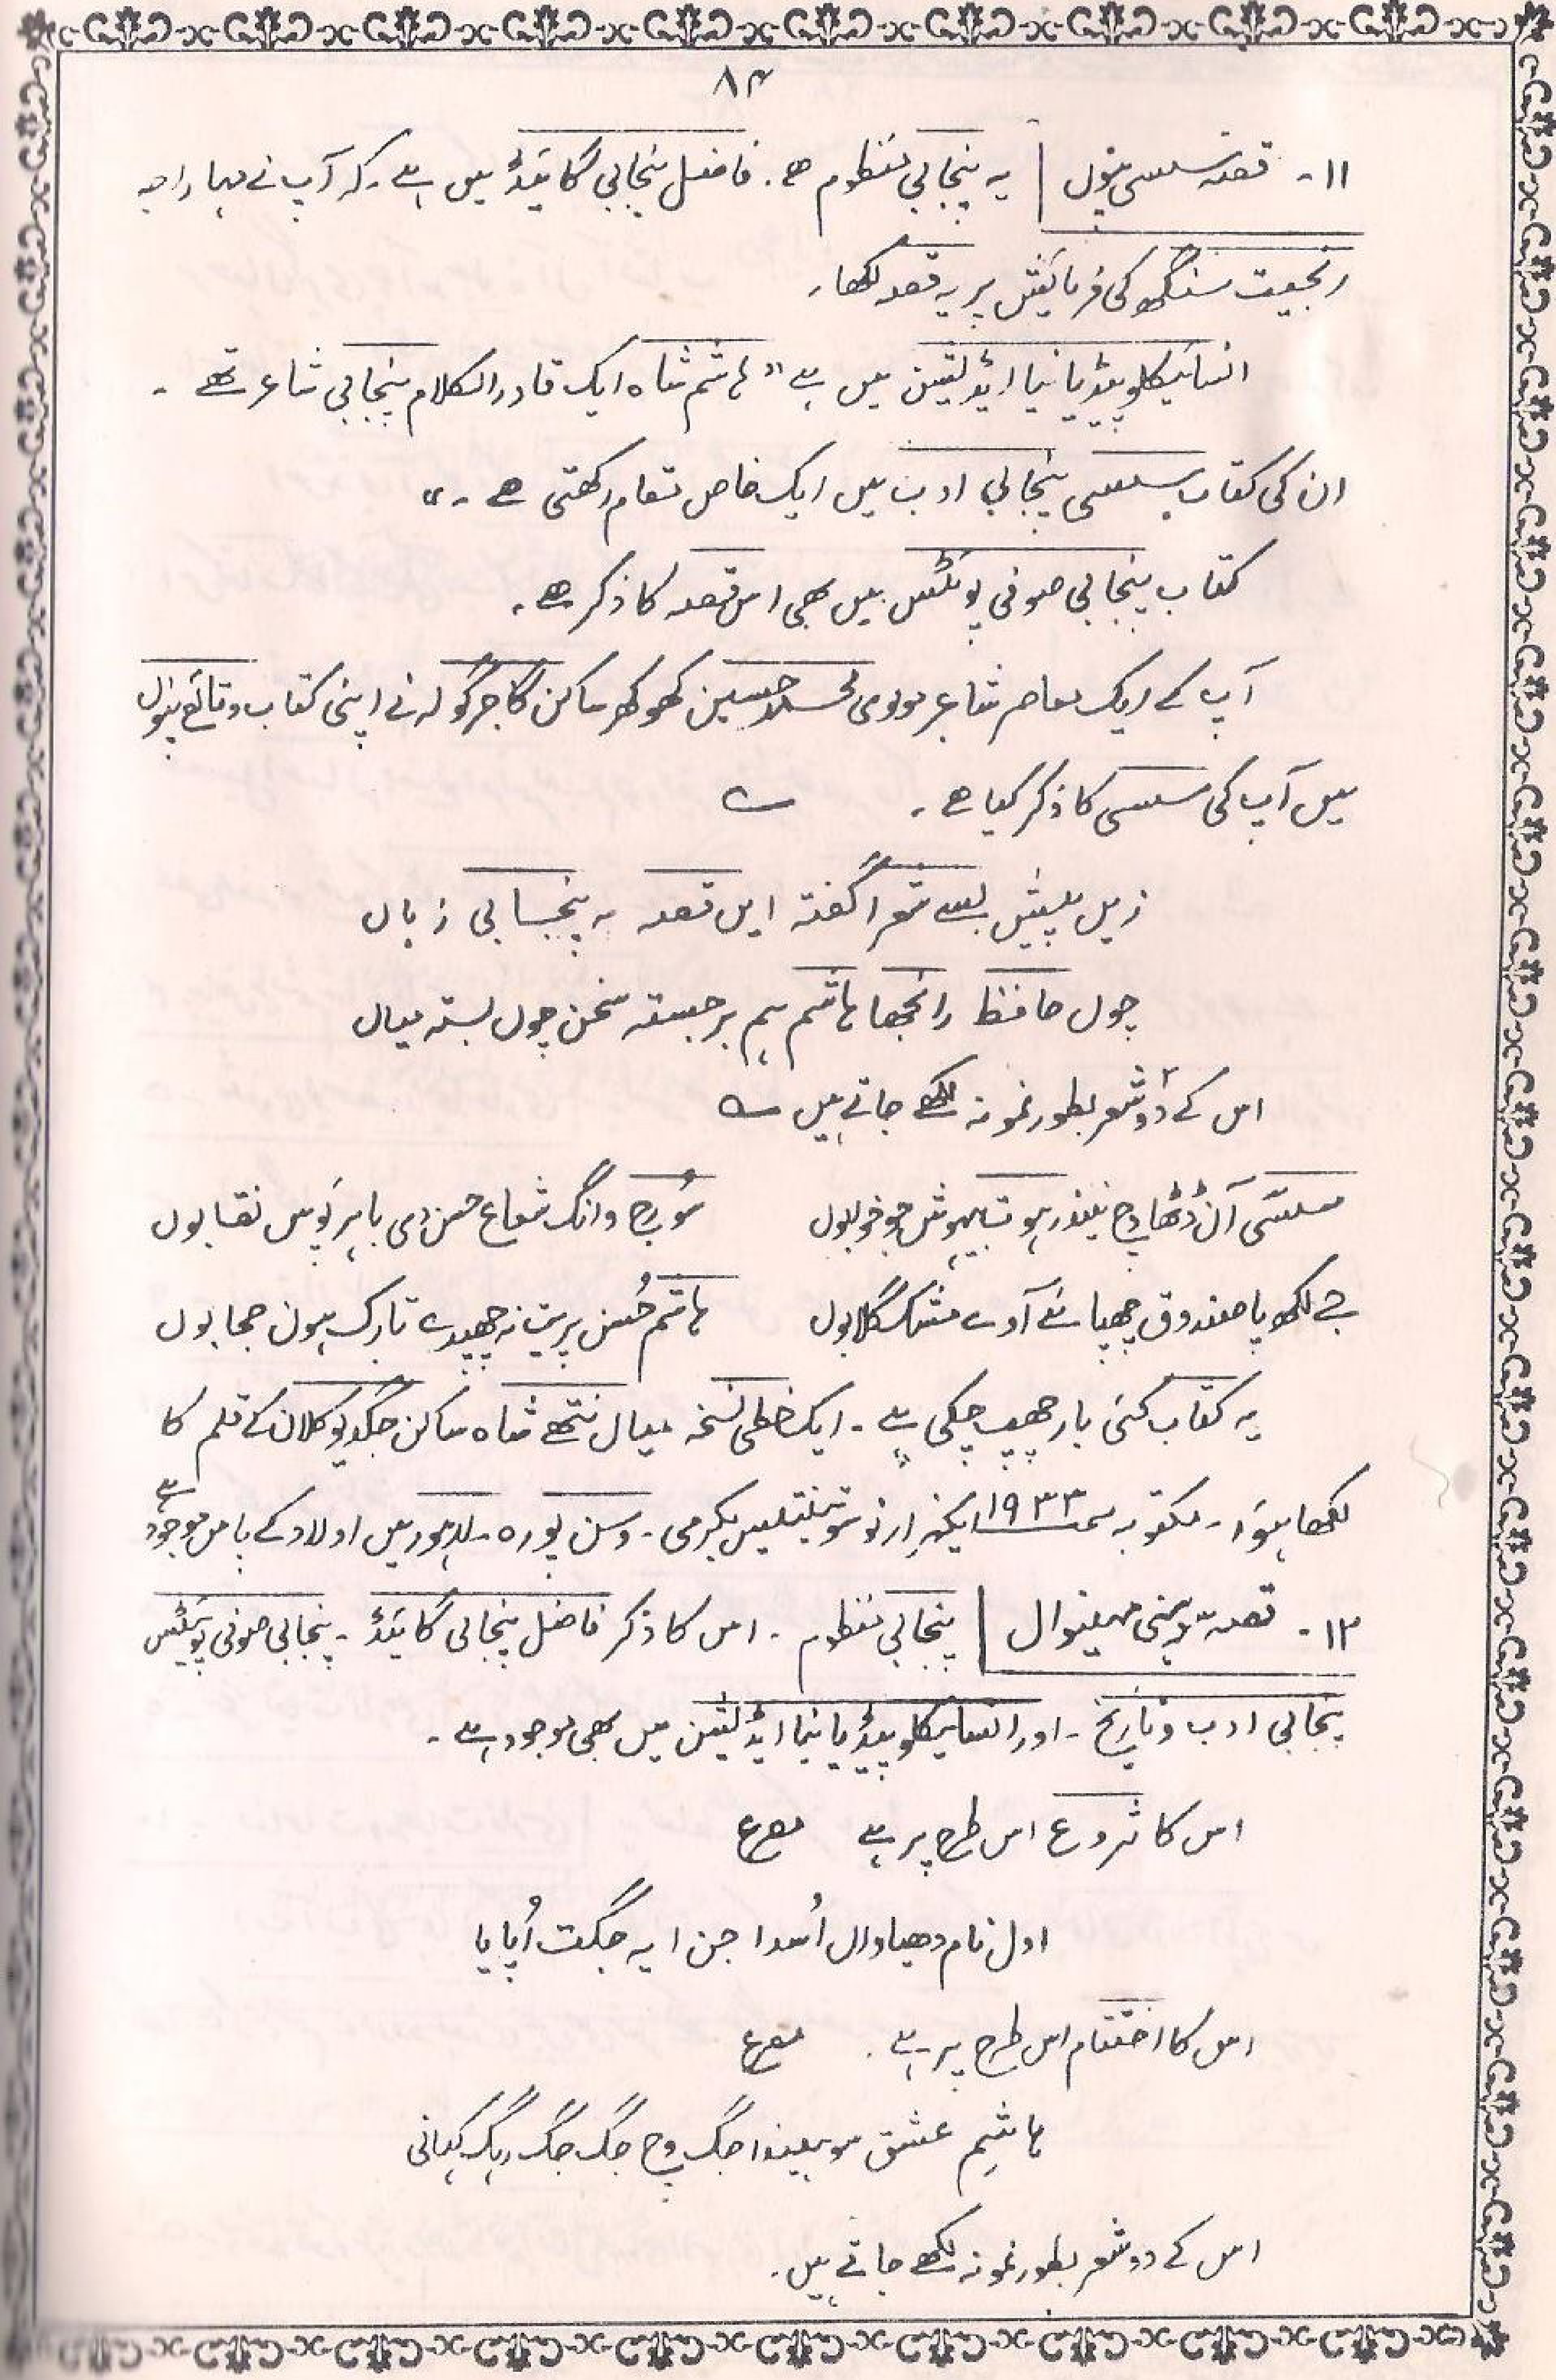 ۸۴
۱۱۔ قصّہ سسی پنوں | یہ پنجابی منظوم ہے۔ فاضل پنجابی گائیڈ میں ہے۔ کہ آپ نے مہاراجہ
رنجیت سنگھ کی فرمائیش پر یہ قصہ لکھا۔
انسائیکلوپیڈیا نیا ایڈیشن میں ہے "ہاشم شاہ ایک قادر الکلام پنجابی شاعر تھے۔
ان کی کتاب سسی پنجابی ادب میں ایک خاص مقام رکھتی ہے۔"
کتاب پنجابی صوفی پوئٹس میں بھی اس قصہ کا ذکر ہے۔
آپ کے ایک معاصر شاعر مولوی محمد حسین کھوکھر ساکن گاجرگولہ نے اپنی کتاب وقائع پنوں
میں آپ کی سسی کا ذکر کیا ہے۔ ؎
زیں پیش بسے شعرا گفتہ ایں قصہ بہ پنجابی زباں
چوں حافظ رانجھا ہاشم ہم برجستہ سخن چوں بستہ میاں
اس کے دو شعر بطور نمونہ لکھے جاتے ہیں ؎
سسّی آن ڈٹھا وچ نیندر ہوت بیہوش جو خوابوں سُورج وانگ شعاع حسن دی باہر پَوس نقابوں
جے لکھ پا صندوق چھپائے آوے مشک گلابوں ہاشم حُسن پریت نہ چھپدے تارک ہون حجابوں
یہ کتاب کئی بار چھپ چکی ہے۔ ایک خطی نسخہ میاں نتھے شاہ ساکن جگدیو کلاں کے قلم کا
لکھا ہوا۔ مکتوبہ سمت ۱۹۳۳ ایکہزار نو سو تینتیس بکرمی۔ وسن پورہ۔ لاہور میں اولاد کے پاس موجود ہے
۱۲۔ قصہ سوہنی مہینوال | پنجابی منظوم۔ اس کا ذکر فاضل پنجابی گائیڈ۔ پنجابی صوفی پوئیٹس
پنجابی ادب و تاریخ۔ اور انسائیکلوپیڈیا نیا ایڈیشن میں بھی موجود ہے۔
اس کا شروع اس طرح پر ہے مصرع
اول نام دھیاواں اُسدا جن ایہ جگت اُپایا
اس کا اختتام اس طرح پر ہے۔ مصرع
ہاشم عشق سوہیندا جگ وچ جگ جگ رہگ کہانی
اس کے دو شعر بطور نمونہ لکھے جاتے ہیں۔